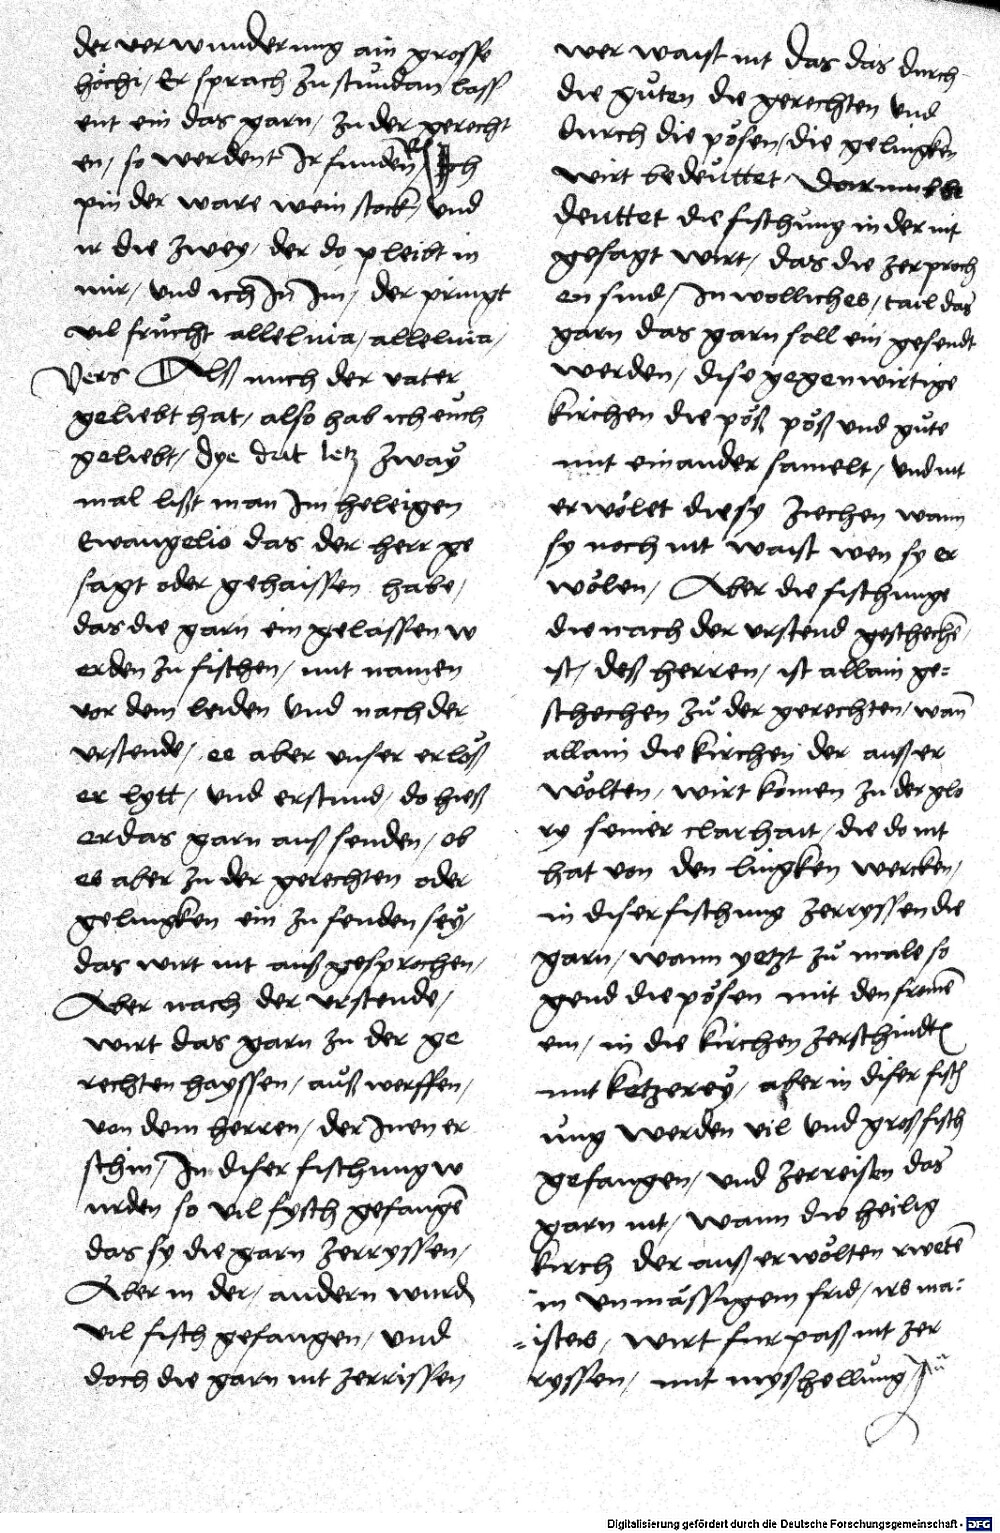 der verwunderung ain grosse
höchi / Er sprach zu stundan lass
ent ein das garn / zu der gerecht
en / so werdent Ir funden /
pin der ware wein stock / und
ir die zwey / der do pleibt in
mir / und ich In Im / der pringt
vil frücht alleluia / alleluia /
Vers Alß mich der vater
geliebt hat / also hab ich eüch
geliebt / dye drit letz zwaÿ
mal lißt man Im heleigen
Ewangelio das der herr ge
sagt oder gehaissen habe /
das die garn ein gelassen w
erden zu fischen / mit namen
vor dem leiden und nach der
urstende / ee aber unser erlöß
er lytt / und erstund / do hieß
er das garn auß senden / ob
es aber zu der gerechten oder
gelingken ein zu senden seÿ /
das wirt nit auß gesprochen /
Aber nach der urstende /
wirt das garn zu der ge
rechten hayssen / auß werffen /
von dem herren / der Inen er
schin / In diser fischung w
urden so vil fysch gefangen̄
das sy die garn zerryssen /
Aber in der / andern wurd
vil fisch gefangen / und
doch die garn nit zerrissen
wer waist nit das das durch
die gůten die gerechten und
durch die pösen / die gelingken
wirt bedeüttet / Darumb be
deuttet die fischung in der nit
gesagt wirt / das die zerproch
en sind / In wolliches / tail das
garn das garn soll ein gesendt
werden / dise gegenwirtige
kirchen die pöß pöß und gůte
mit einander samelt / und nit
erwölet die sy ziechen wann
sy noch nit waist wen sy er
wölen / Aber die fischunge
die nach der urstend geschechen̄ /
ist / deß herren / ist allain ge=
schechen zů der gerechten / wan̄
allain die kirchen der auß er
wölten / wirt komen zu der glo
ry seiner clarhait / die do nit
hat von den lingken wercken /
in diser fischung zerryssen die
garn / wann yetzt zů male so
gend die pösen mit den fromen̄
ein / in die kirchen zerschindt
mit ketzereÿ / aber in diser fisch
ung werden vil und groß fisch
gefangen / und zerreisten das
garn nit / wann die heilig
kirch der auß erwölten rweten̄
in unmässigem frid / irs ma=
=isters / wirt furpaß nit zer
ryssen / mit myßhellung /
Digitalisierung gefördert durch die Deutsche Forschungsgemeinschaft - DFG